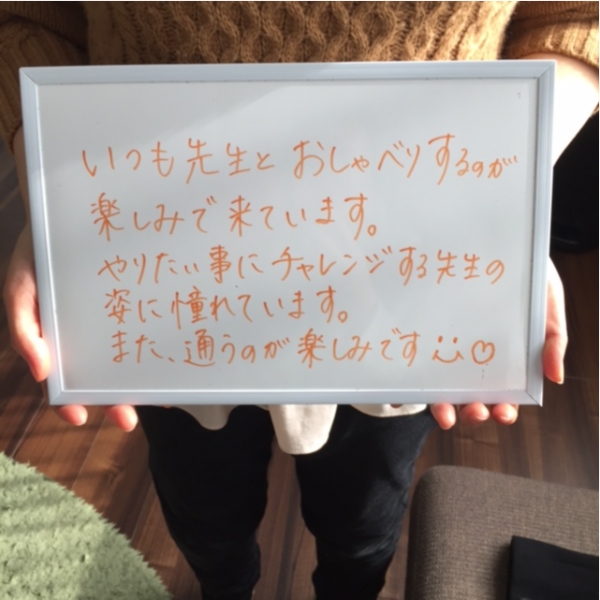 いつも先生とおしゃべりするのが
楽しみで来ています。
やりたい事にチャレンジする先生の
姿に憧れています。
また、通うのが楽しみです